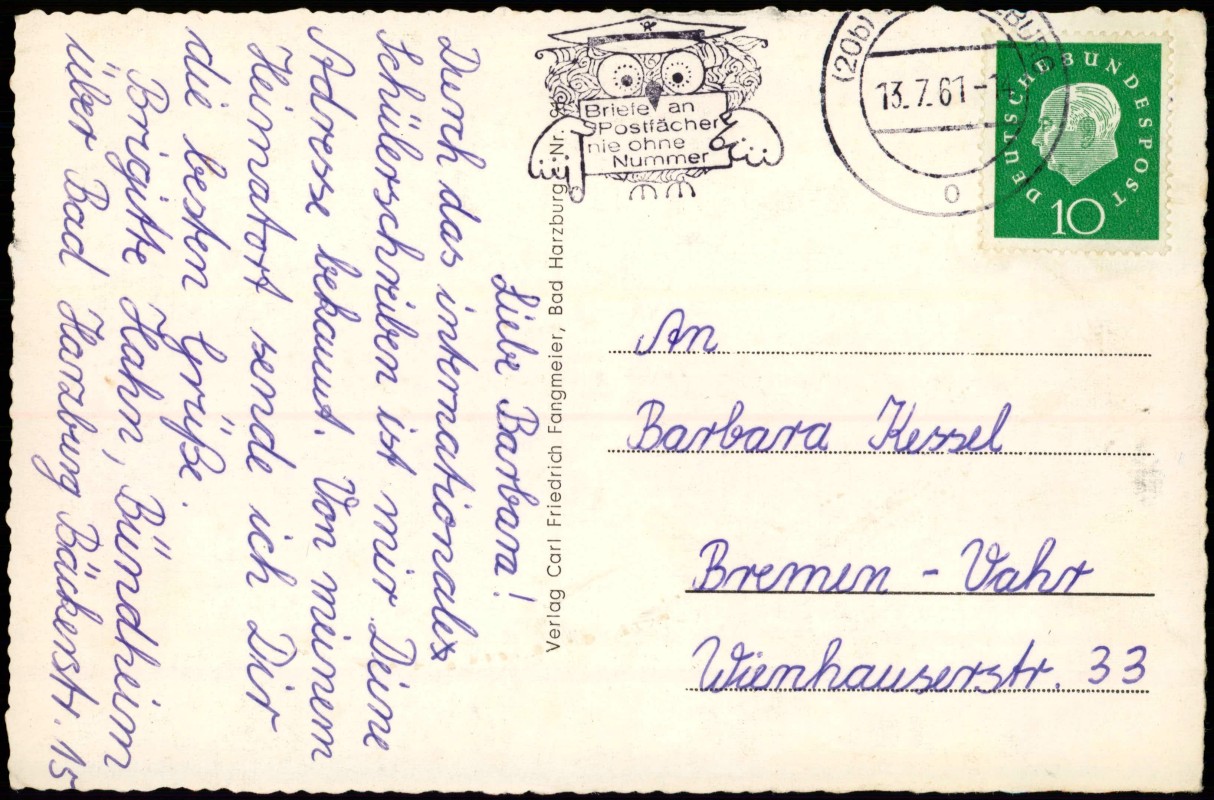 Liebe Barbara!
Durch das internationale
Schülerschreiben ist mir Deine
Adresse bekannt. Von meinem
Heimatort sende ich Dir
die besten Grüße.
Brigitte Hahn, Bündheim
über Bad Harzburg Bäckerstr. 15
Verlag Carl Friedrich Fangmeier, Bad Harzburg Nr.
Briefe an
Postfächer
nie ohne
Nummer
(20b)
13.7.61
o
DEUTSCHE BUNDESPOST
10
An
Barbara Kessel
Bremen - Vahr
Wienhauserstr. 33